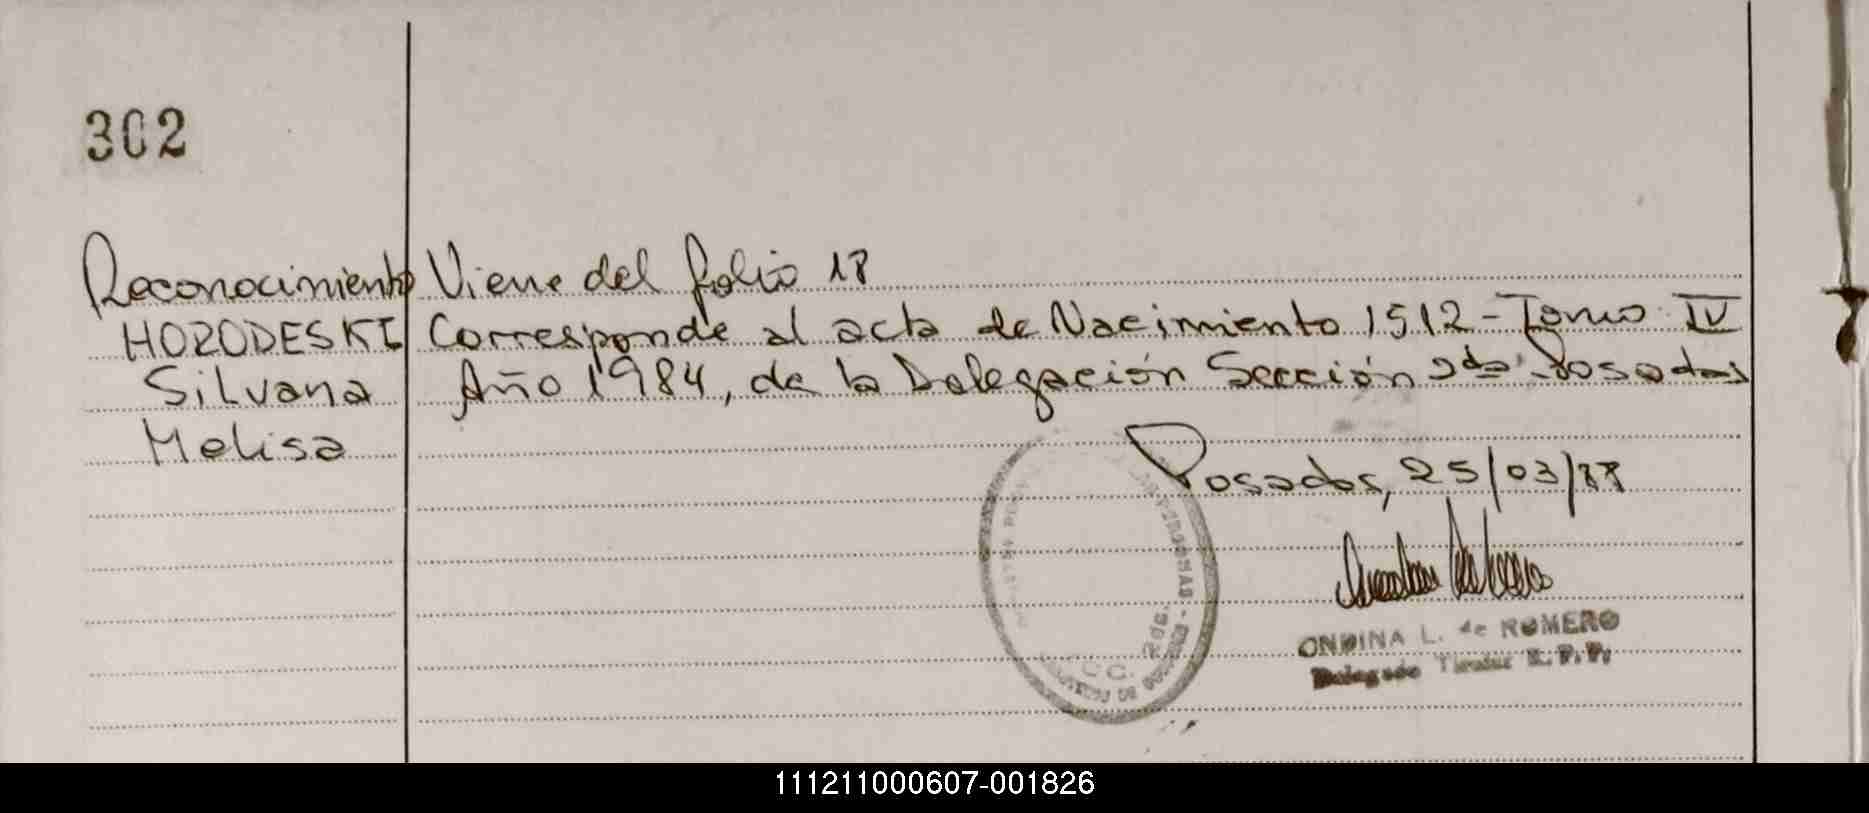 302
Reconocimiento Viene del folio 18
HOZODESKI Corresponde al acta de Nacimiento 1512 - Tomo IV
Silvana Año 1984, de la Delegación Sección 2da Posadas
Melisa
Posadas, 25/03/88
ONDINA L. de ROMERO
Delegado Titular R. P. P.
111211000607-001826